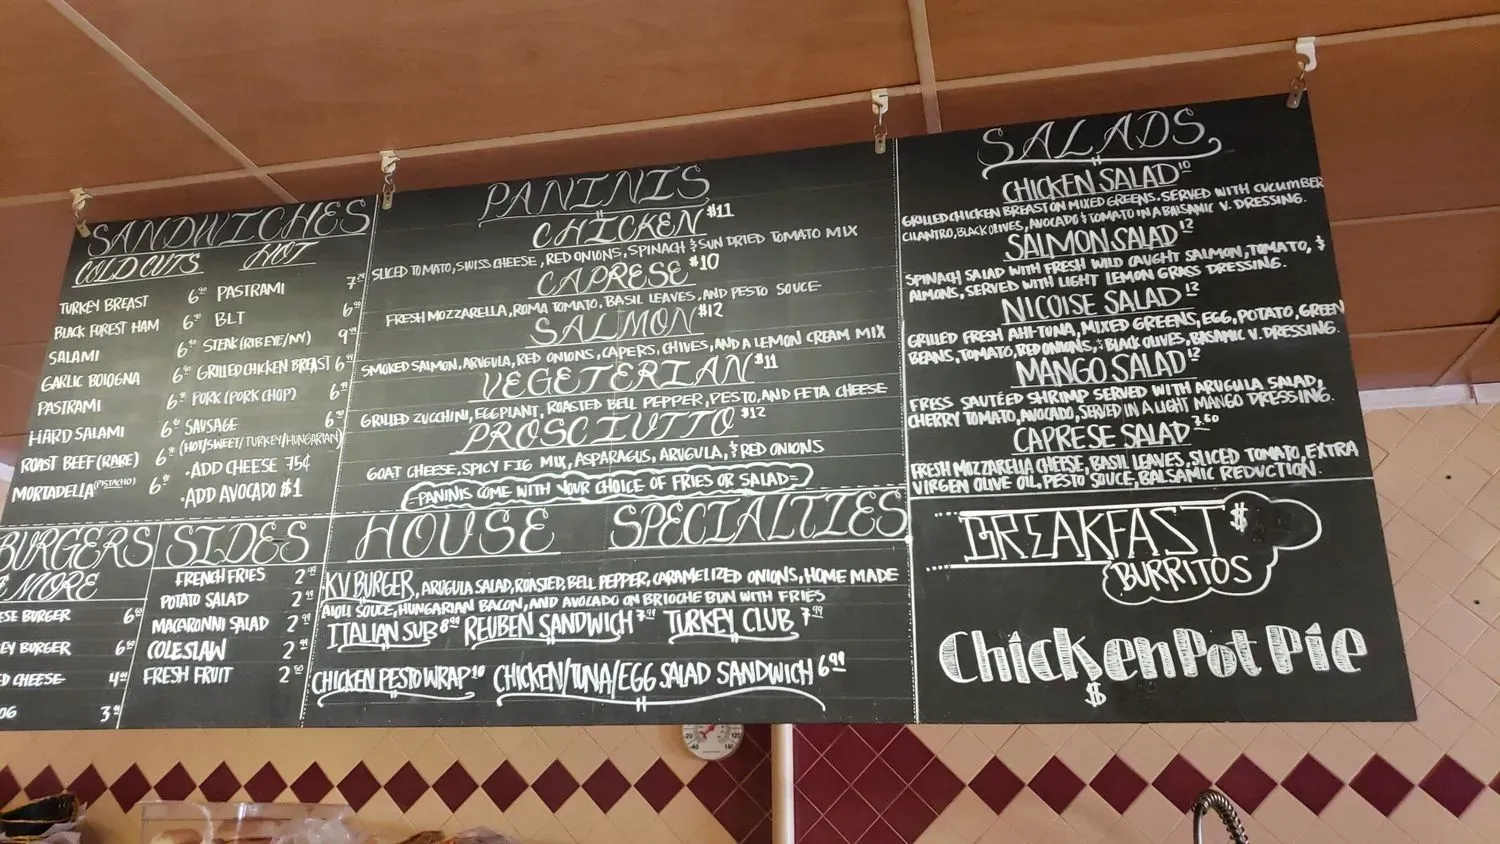 SANDWICHES
COLD CUTS HOT
TURKEY BREAST 6.90
BLACK FOREST HAM 6.90
SALAMI 6.90
GARLIC BOLOGNA 6.90
PASTRAMI 6.90
HARD SALAMI 6.90
ROAST BEEF (RARE) 6.90
MORTADELLA (PISTACHO) 6.90
PASTRAMI
BLT
STEAK (RIB EYE/NY)
GRILLED CHICKEN BREAST
PORK (PORK CHOP)
SAUSAGE
(HOT/SWEET/TURKEY/HUNGARIAN)
·ADD CHEESE 75¢
·ADD AVOCADO $1
BURGERS
MORE
ESE BURGER
EY BURGER
ED CHEESE
OG
SIDES
FRENCH FRIES 2.99
POTATO SALAD 2.99
MACARONNI SALAD 2.99
COLESLAW 2.99
FRESH FRUIT 2.50
PANINIS
CHICKEN $11
SLICED TOMATO, SWISS CHEESE, RED ONIONS, SPINACH & SUN DRIED TOMATO MIX
CAPRESE $10
FRESH MOZZARELLA, ROMA TOMATO, BASIL LEAVES, AND PESTO SOUCE
SALMON $12
SMOKED SALMON, ARUGULA, RED ONIONS, CAPERS, CHIVES, AND A LEMON CREAM MIX
VEGETERIAN $11
GRILLED ZUCCHINI, EGGPLANT, ROASTED BELL PEPPER, PESTO, AND FETA CHEESE
PROSCIUTTO $12
GOAT CHEESE, SPICY FIG MIX, ASPARAGUS, ARUGULA, & RED ONIONS
-PANINIS COME WITH YOUR CHOICE OF FRIES OR SALAD-
HOUSE SPECIALTIES
KV BURGER, ARUGULA SALAD, ROASTED BELL PEPPER, CARAMELIZED ONIONS, HOME MADE
AIOLI SOUCE, HUNGARIAN BACON, AND AVOCADO ON BRIOCHE BUN WITH FRIES
ITALIAN SUB 8.99 REUBEN SANDWICH 7.99 TURKEY CLUB 7.99
CHICKEN PESTO WRAP 10 CHICKEN/TUNA/EGG SALAD SANDWICH 6.99
SALADS
CHICKEN SALAD 10
GRILLED CHICKEN BREAST ON MIXED GREENS. SERVED WITH CUCUMBER
CILANTRO, BLACK OLIVES, AVOCADO & TOMATO IN A BALSAMIC V. DRESSING.
SALMON SALAD 12
SPINACH SALAD WITH FRESH WILD CAUGHT SALMON, TOMATO, &
ALMONS, SERVED WITH LIGHT LEMON GRASS DRESSING.
NICOISE SALAD 12
GRILLED FRESH AHI-TUNA, MIXED GREENS, EGG, POTATO, GREEN
BEANS, TOMATO, RED ONIONS, & BLACK OLIVES, BASAMIC V. DRESSING.
MANGO SALAD 12
FRESS SAUTÉED SHRIMP SERVED WITH ARUGULA SALAD,
CHERRY TOMATO, AVOCADO, SERVED IN A LIGHT MANGO DRESSING.
CAPRESE SALAD 7.50
FRESH MOZZARELLA CHEESE, BASIL LEAVES, SLICED TOMATO, EXTRA
VIRGEN OLIVE OIL, PESTO SOUCE, BALSAMIC REDUCTION.
BREAKFAST $
BURRITOS
Chicken Pot Pie
$